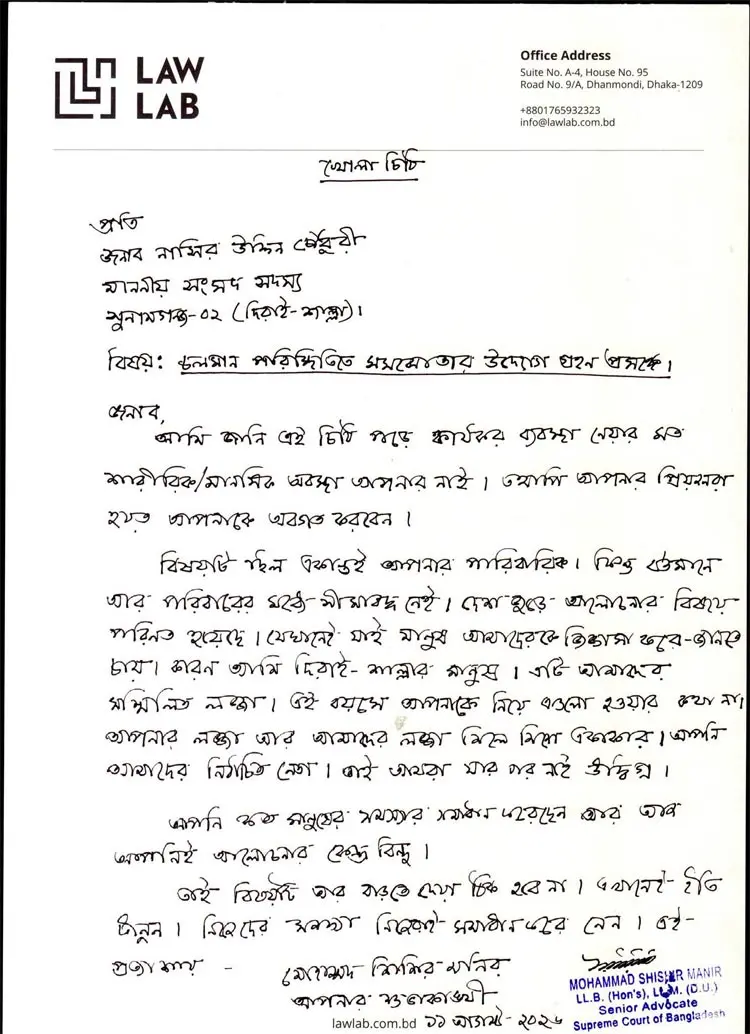 LAW
LAB
Office Address
Suite No. A-4, House No. 95
Road No. 9/A, Dhanmondi, Dhaka-1209
+8801765932323
info@lawlab.com.bd
খোলা চিঠি
প্রতি
জনাব নাসির উদ্দিন চৌধুরী
মাননীয় সংসদ সদস্য
সুনামগঞ্জ-০২ (দিরাই-শাল্লা)।
বিষয়: চলমান পরিস্থিতিতে সমঝোতার উদ্যোগ গ্রহন প্রসঙ্গে।
জনাব,
আমি জানি এই চিঠি পড়ে কার্যকর ব্যবস্থা নেয়ার মত
শারীরিক/মানসিক অবস্থা আপনার নাই। তথাপি আপনার প্রিয়জনরা
হয়ত আপনাকে অবগত করবেন।
বিষয়টি ছিল একান্তই আপনার পারিবারিক। কিন্তু বর্তমানে
আর পরিবারের মধ্যে সীমাবদ্ধ নেই। দেশ জুড়ে আলোচনার বিষয়ে
পরিনত হয়েছে। যেখানেই যাই মানুষ আমাদেরকে জিজ্ঞাসা করে-জানতে
চায়। কারন আমি দিরাই-শাল্লার মানুষ। এটি আমাদের
সম্মিলিত লজ্জা। এই বয়সে আপনাকে নিয়ে এগুলো হওয়ার কথা না।
আপনার লজ্জা আর আমাদের লজ্জা মিলে মিশে একাকার। আপনি
আমাদের নির্বাচিত নেতা। তাই আমরা যার পর নাই উদ্বিগ্ন।
আপনি কত মানুষের সমস্যার সমাধান করেছেন আর আজ
আপনিই আলোচনার কেন্দ্র বিন্দু।
তাই বিষয়টি আর বাড়তে দেয়া ঠিক হবে না। এখানেই ইতি
টানুন। নিজেদের সমস্যা নিজেরাই সমাধান করে নেন। এই-
প্রত্যাশায় -
মোহাম্মদ শিশির মনির
আপনার শুভাকাঙ্খী
১১ আগস্ট-২০২৬
MOHAMMAD SHISHIR MANIR
LL.B. (Hon's), LL.M. (D.U.)
Senior Advocate
Supreme Court of Bangladesh
lawlab.com.bd